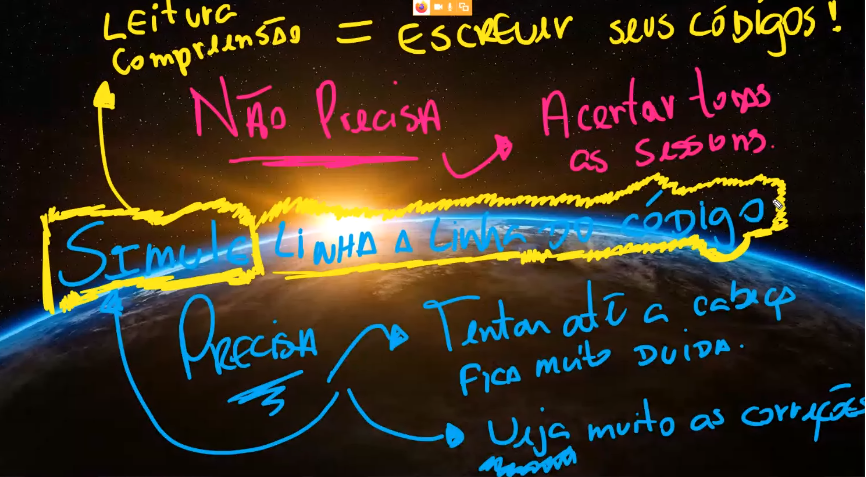 LEITURA
COMPREENSÃO = ESCREVER SEUS CÓDIGOS!
NÃO PRECISA
ACERTAR TODAS
AS SESSIONS.
SIMULE LINHA A LINHA DO CÓDIGO
PRECISA
TENTAR ATÉ A CABEÇA
FICA MUITO DOIDA.
VEJA MUITO AS CORREÇÕES